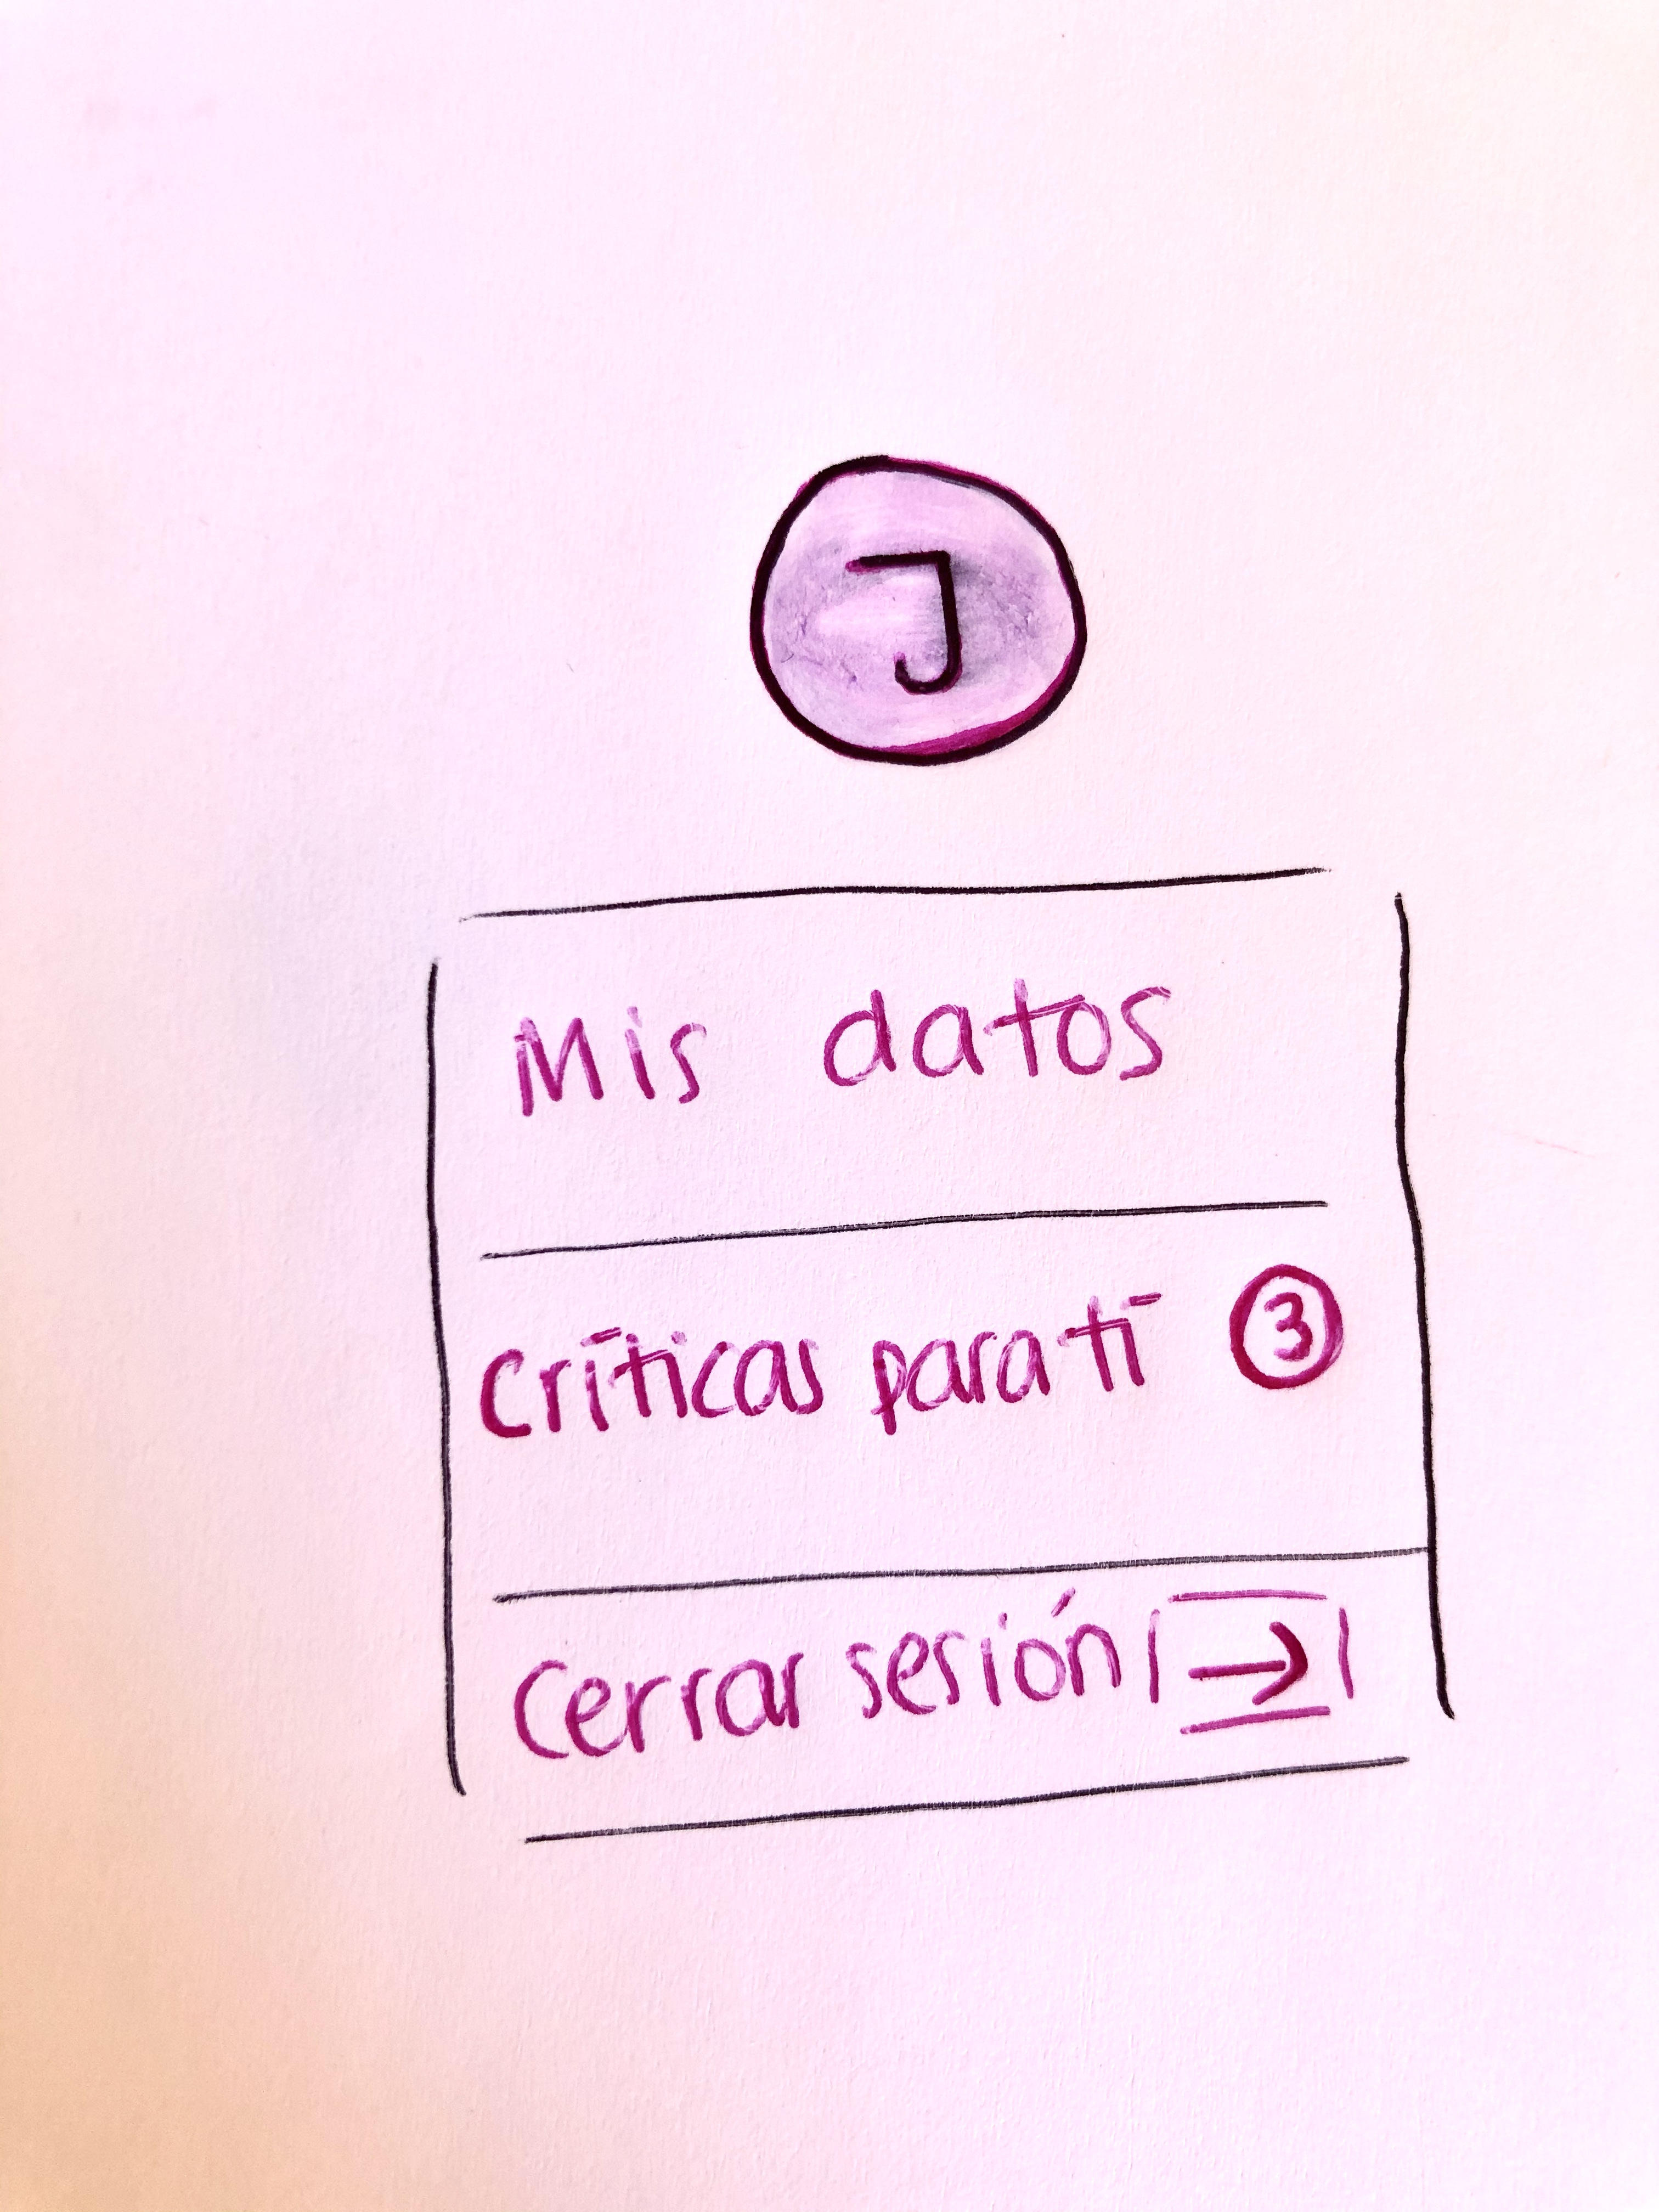 J
Mis datos
Críticas para ti 3
Cerrar sesión →